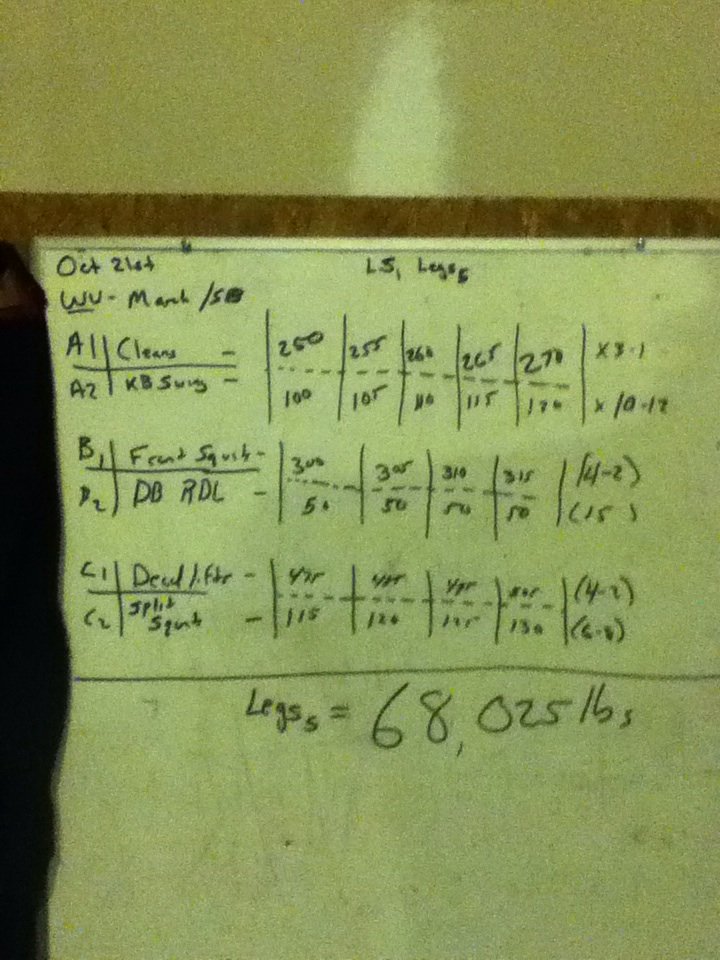 Oct 21st L5, Legs5
WU - March /50
A1 Cleans - 250 255 260 265 270 x 3-1
A2 KB Swing - 100 105 110 115 120 x 10-12
B1 Front Squats - 300 305 310 315 (4-2)
B2 DB RDL - 50 50 50 50 (15)
C1 Deadlifts - (4-2)
C2 Split Squat - 115 120 125 130 (6-8)
Legs5 = 68,025 lbs